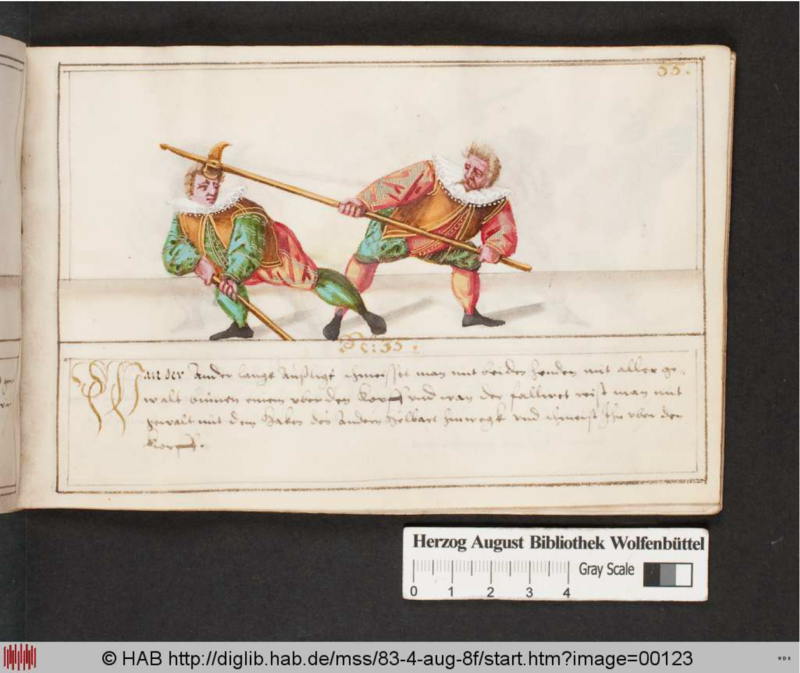 55.
N: 55.
Wan der Ander langs außligt schmeist man mit beiden henden mit aller ge-
walt binnen einen vber den Kopff vnd wan der falliret reist man mit
gewalt mit dem Haken des andern Helbart hinwegk vnd schmeist Ihn vber den
Kopff.
Herzog August Bibliothek Wolfenbüttel
Gray Scale
0 1 2 3 4
© HAB http://diglib.hab.de/mss/83-4-aug-8f/start.htm?image=00123